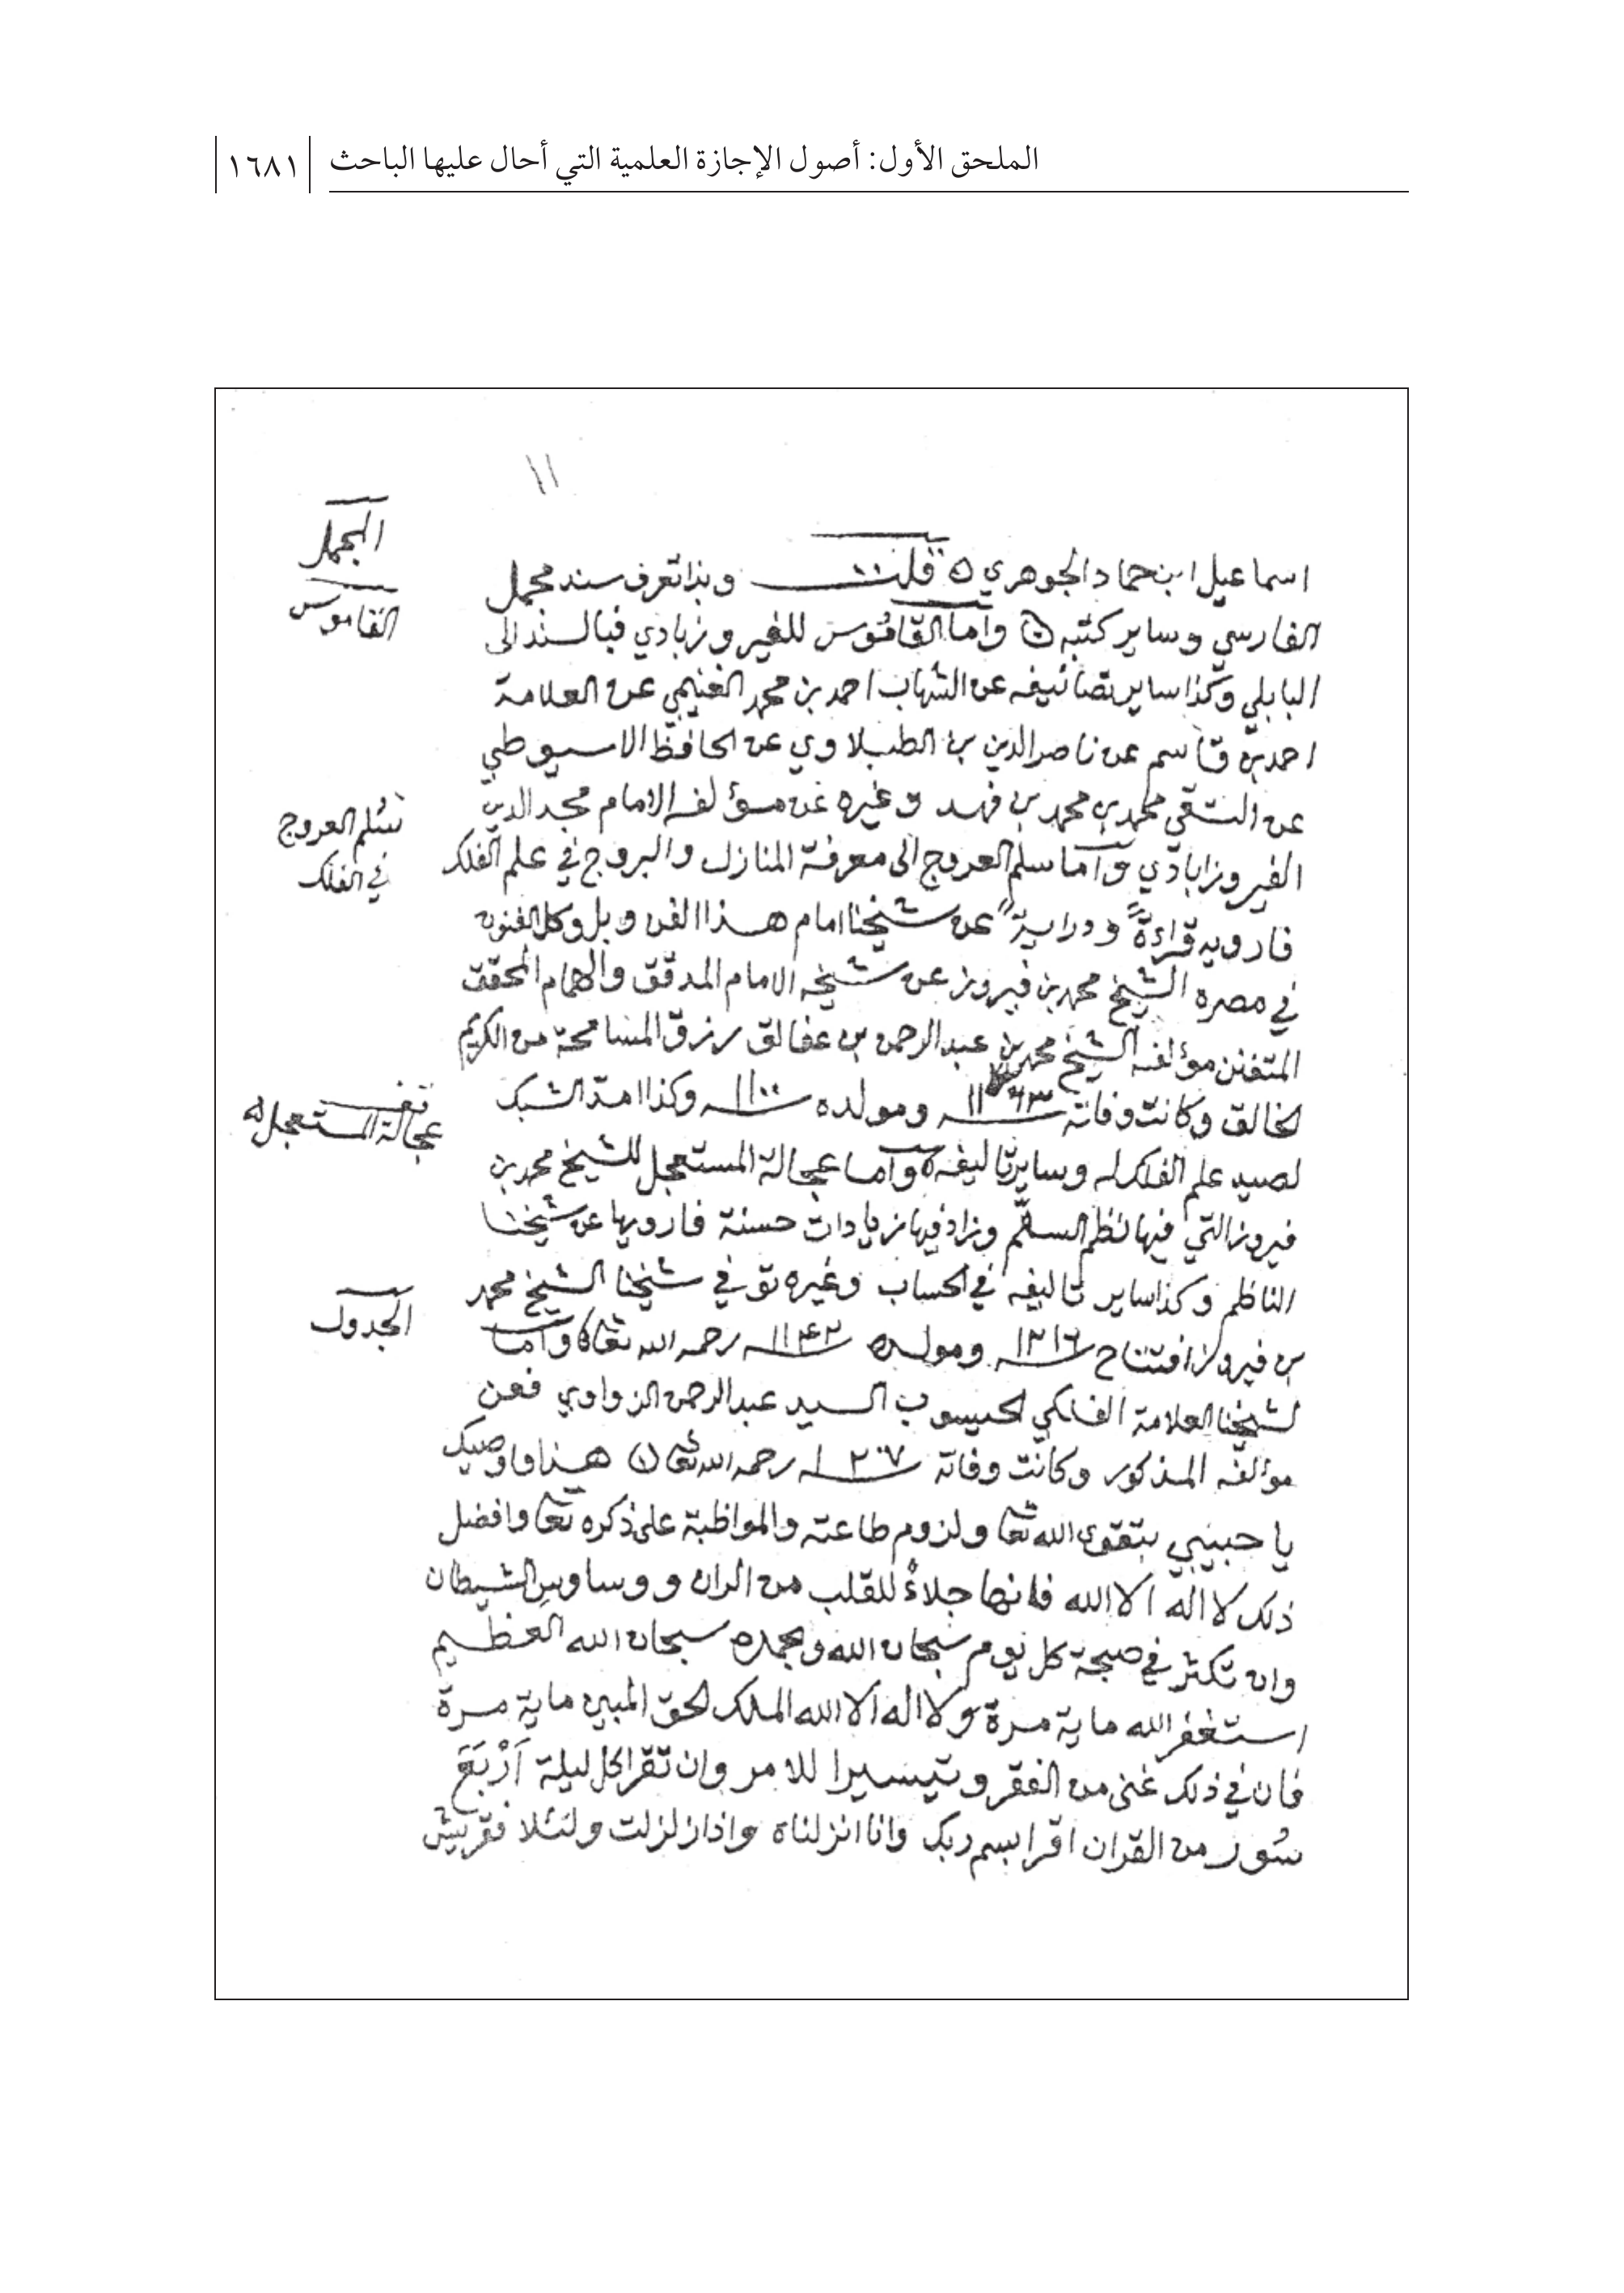 الملحق الأول: أصول الإجازة العلمية التي أحال عليها الباحث
١٦٨١
١١
اسماعيل ابن حماد الجوهري ٥ قلت وبذا تعرف سند مجمل
المجمل
الفارسي وساير كتبه ٥ وأما القاموس للفيروزبادي فبالسند الى
القاموس
البابلي وكذا ساير تصانيفه عن الشهاب احمد بن محمد الغنيمي عن العلامة
احمد بن قاسم عن ناصر الدين بن الطبلاوي عن الحافظ الاسيوطي
عن التقي محمد بن محمد بن فهد وغيره عن مؤلفه الامام مجد الدين
الفيروزابادي وأما سلم العروج الى معرفة المنازل والبروج في علم الفلك
سلم العروج
في الفلك
فارويه قراءة ودراية عن شيخنا امام هذا الفن وبل وكل الفنون
في عصره الشيخ محمد بن فيروز عن شيخه الامام المدقق والهمام المحقق
المتفنن مؤلفه الشيخ محمد بن عبدالرحمن بن عفالق رزق المسامحة من الكريم
الخالق وكانت وفاته ١١٦٣ ومولده ١١٠٠ وكذا مد الشبك
لصيد علم الفلك له وساير تاليفه ٥ وأما عجالة المستعجل للشيخ محمد بن
عجالة المستعجل له
فيروز التي فيها نظم السلم وزاد فيها زيادات حسنة فارويها عن شيخنا
الناظم وكذا ساير تاليفه في الحساب وغيره توفي شيخنا الشيخ محمد
بن فيروز افتتاح ١٢١٦ ومولده ١١٤٢ رحمه الله تعالى وأما
الجدول
لشيخنا العلامة الفلكي الحيسوب السيد عبدالرحمن الزواوي فعن
مؤلفه المذكور وكانت وفاته ١٢٠٧ رحمه الله تعالى ٥ هذا واوصيك
يا حبيبي بتقوى الله تعالى ولزوم طاعته والمواظبة على ذكره تعالى وافضل
ذلك لا اله الا الله فانها جلاءٌ للقلب من الران ووساوس الشيطان
وان تكثر في صبحة كل يوم سبحان الله وبحمده سبحان الله العظيم
استغفر الله ماية مرة ولا اله الا الله الملك الحق المبين ماية مرة
فان في ذلك غنى من الفقر وتيسيرا للامر وان تقرا كل ليلة اَرْبَعَ
سُور من القران اقرا بسم ربك وانا انزلناه واذا زلزلت ولئلاف قريش